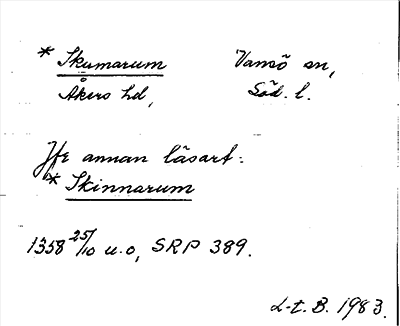 * Skumarum Vansö sn,
Åkers hd, Söd. l.
Jfr annan läsart:
* Skinnarum
1358 25/10 u.o, SRP 389.
L-t. B. 1983.